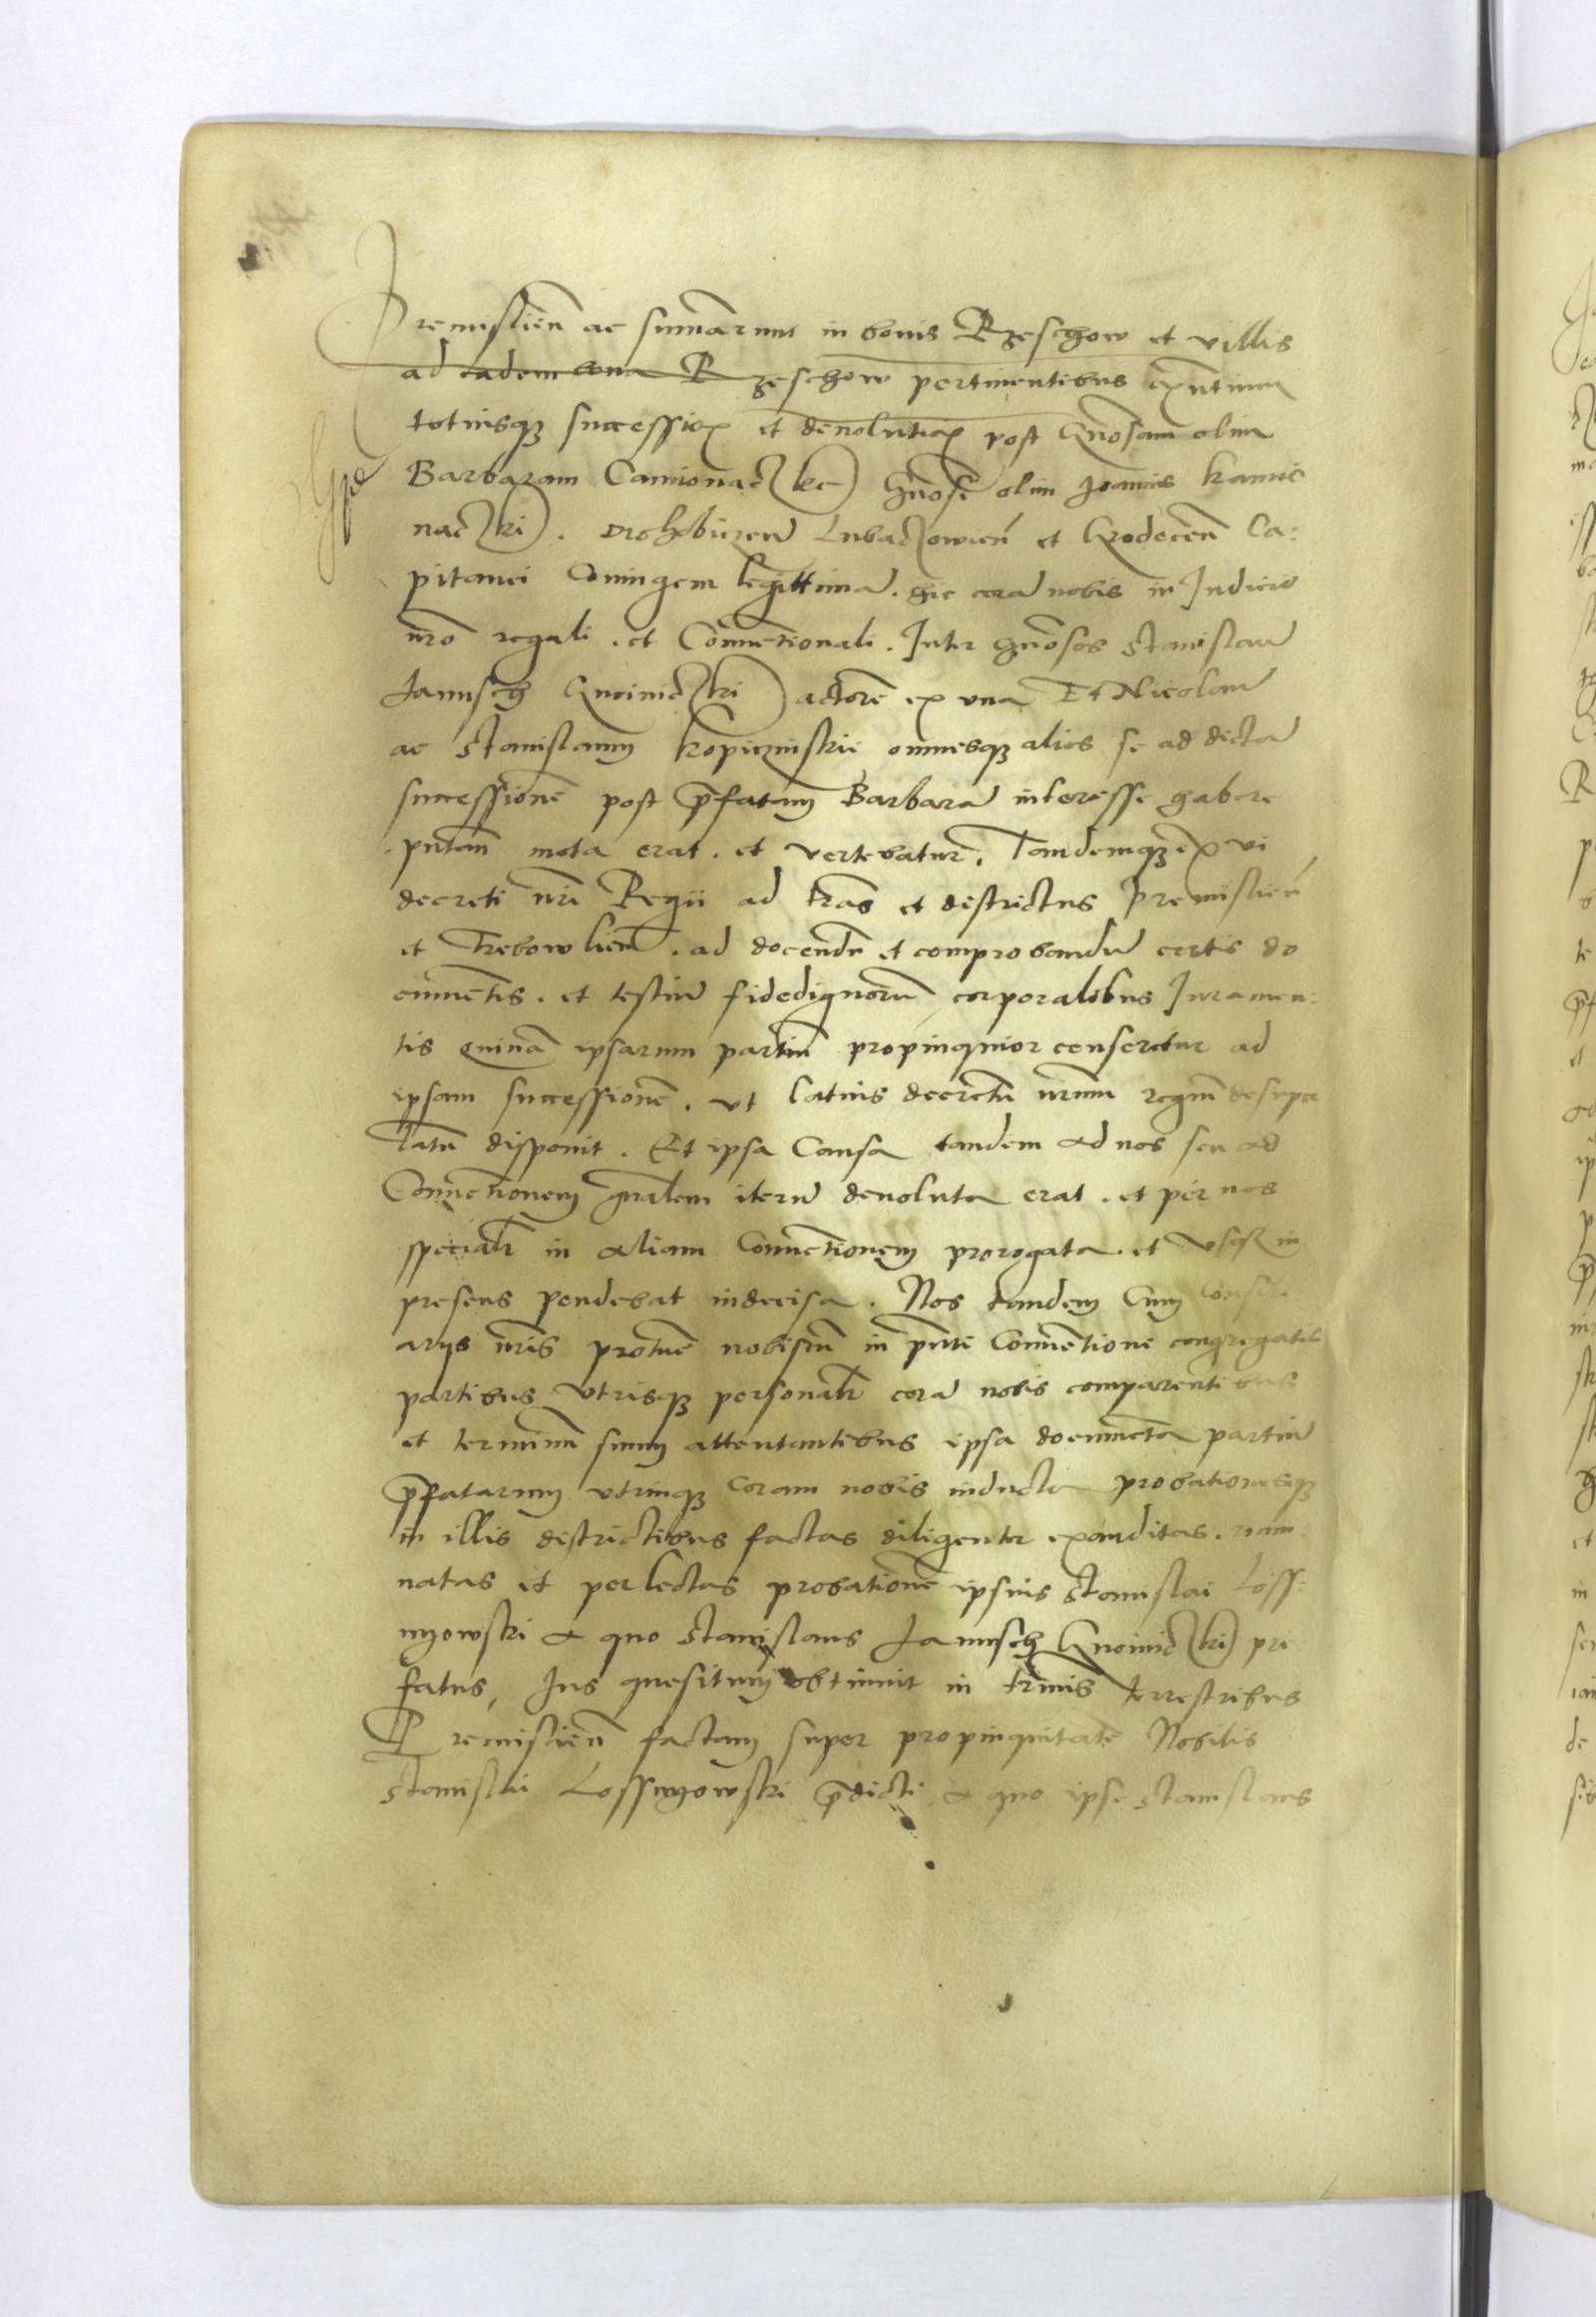 Premislien̄ ac sum̄arum in bonis Rzeschow et villis
ad eadem bona Rzeschow pertinentibus
totiusqꝫ success et devolut post Gn̄osam olim
Barbaram Camionaczka Gn̄osi olim Joannis Kamie
naczki. Drohobiczen̄ Lubaczowien̄ et Grodecen̄ Ca:
pitanei Coniugem legittimā. hic corā nobis in Judicio
nr̄o regali. et Convētionali. Inter gn̄osos Stanislaū
Janusch Gnoiniczki actorē ex una Et Nicolaū
ac Stanislaum Kopiczinskii omnesqꝫ alios se ad dictā
successionē post p̄fatam Barbarā interesse habere
putan̄ mota erat. et vertebatur. Tandemqꝫ ex vi
decreti nr̄i Regii ad tr̄as et districtus Premislien̄
et Trebowlien̄. ad docendū et comprobandū certis do
cumētis. et testiū fidedignorū corporalibus Juramen:
tis quinā ipsarum partiū propinquior censeretur ad
ipsam successionē. ut latius decretū nr̄um regiū desuper
latū disponit. Et ipsa Causa tandem ad nos seu ad
Convētionem gn̄alem iterū devoluta erat. et per nos
specialr̄ in aliam Convētionem prorogata. et usqꝫ in
presens pendebat indecisa. Nos tandem Cum Consili
ariis nr̄is protūc nobiscū in pn̄ti Convētione congregatis
partibus utrisqꝫ personalr̄ corā nobis comparentibus
et terminū suum attentantibus ipsa documēta partiū
p̄fatarum utrinqꝫ coram nobis inducta probationesqꝫ
in illis districtibus factas diligenter exauditas. rum
natas et perlectas probationē ipsius Stanislai Loss:
nyowski a quo Stanislaus Janusch Gnoiniczki pre
fatus, Jus quesitum obtinuit in tr̄minis terrestribus
Premislien̄ factam super propinquitate Nobilis
Stanislai Lossnyowski p̄dicti a quo ipse Stanislaus